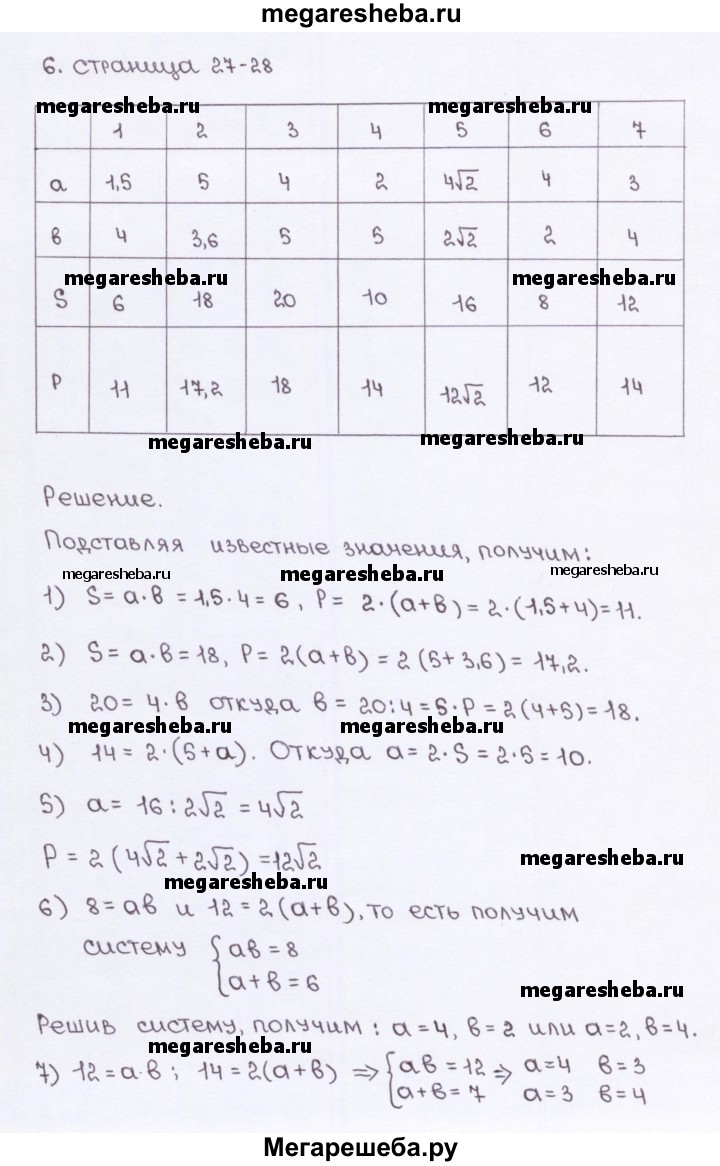 megaresheba.ru
6. страница 27-28
megaresheba.ru megaresheba.ru
1 2 3 4 5 6 7
a 1,5 5 4 2 4√2 4 3
в 4 3,6 5 5 2√2 2 4
megaresheba.ru megaresheba.ru
S 6 18 20 10 16 8 12
P 11 17,2 18 14 12√2 12 14
megaresheba.ru megaresheba.ru
Решение.
Подставляя известные значения, получим:
megaresheba.ru megaresheba.ru megaresheba.ru
1) S = a·в = 1,5·4 = 6, P = 2·(a+в) = 2·(1,5+4) = 11.
2) S = a·в = 18, P = 2(a+в) = 2(5+3,6) = 17,2.
3) 20 = 4·в откуда в = 20:4 = 5·P = 2(4+5) = 18.
megaresheba.ru megaresheba.ru
4) 14 = 2·(5+a). Откуда a = 2·S = 2·5 = 10.
5) a = 16 : 2√2 = 4√2
P = 2(4√2 + 2√2) = 12√2
megaresheba.ru
megaresheba.ru
6) 8 = aв и 12 = 2(a+в), то есть получим
систему { aв = 8
a+в = 6
megaresheba.ru
Решив систему, получим: a=4, в=2 или a=2, в=4.
megaresheba.ru
7) 12 = a·в; 14 = 2(a+в) ⇒ { aв = 12 ⇒ a=4 в=3
a+в = 7 a=3 в=4
Мегарешеба.ру